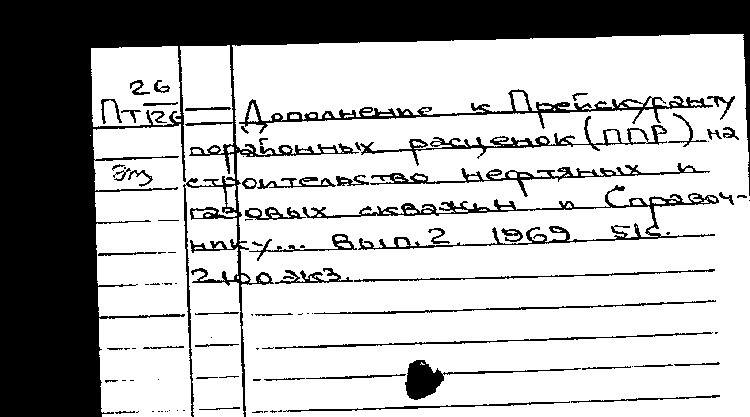 26
Пт126 Дополнение к Прейскуранту
порайонных расценок (ППР) на
эт строительство нефтяных и
газовых скважин и Справоч-
нику... Вып. 2. 1969. 51с.
2100экз.